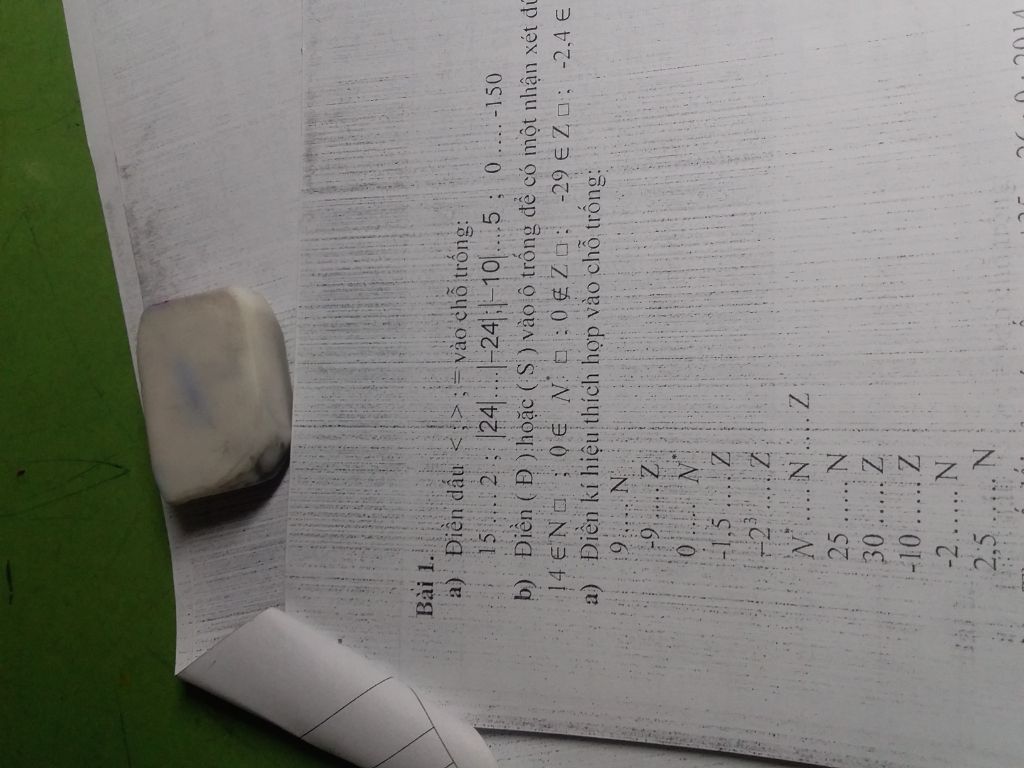 Bài 1.
a) Điền dấu < ; > ; = vào chỗ trống:
15 ..... 2 ; |24|....|−24|;|−10|....5 ; 0 ..... -150
b) Điền ( Đ ) hoặc ( S ) vào ô trống để có một nhận xét
14 ∈ N □ ; 0 ∈ N* □ ; 0 ∉ Z □ ; -29 ∈ Z □ ; -2,4 ∈
a) Điền kí hiệu thích hợp vào chỗ trống:
9 ...... N
-9 ...... Z
0 ..... N*
-1,5 ...... Z
-2³ ...... Z
N* ...... N ...... Z
25 ...... N
30 ....... Z
-10 ...... Z
-2 ...... N
2,5 ...... N